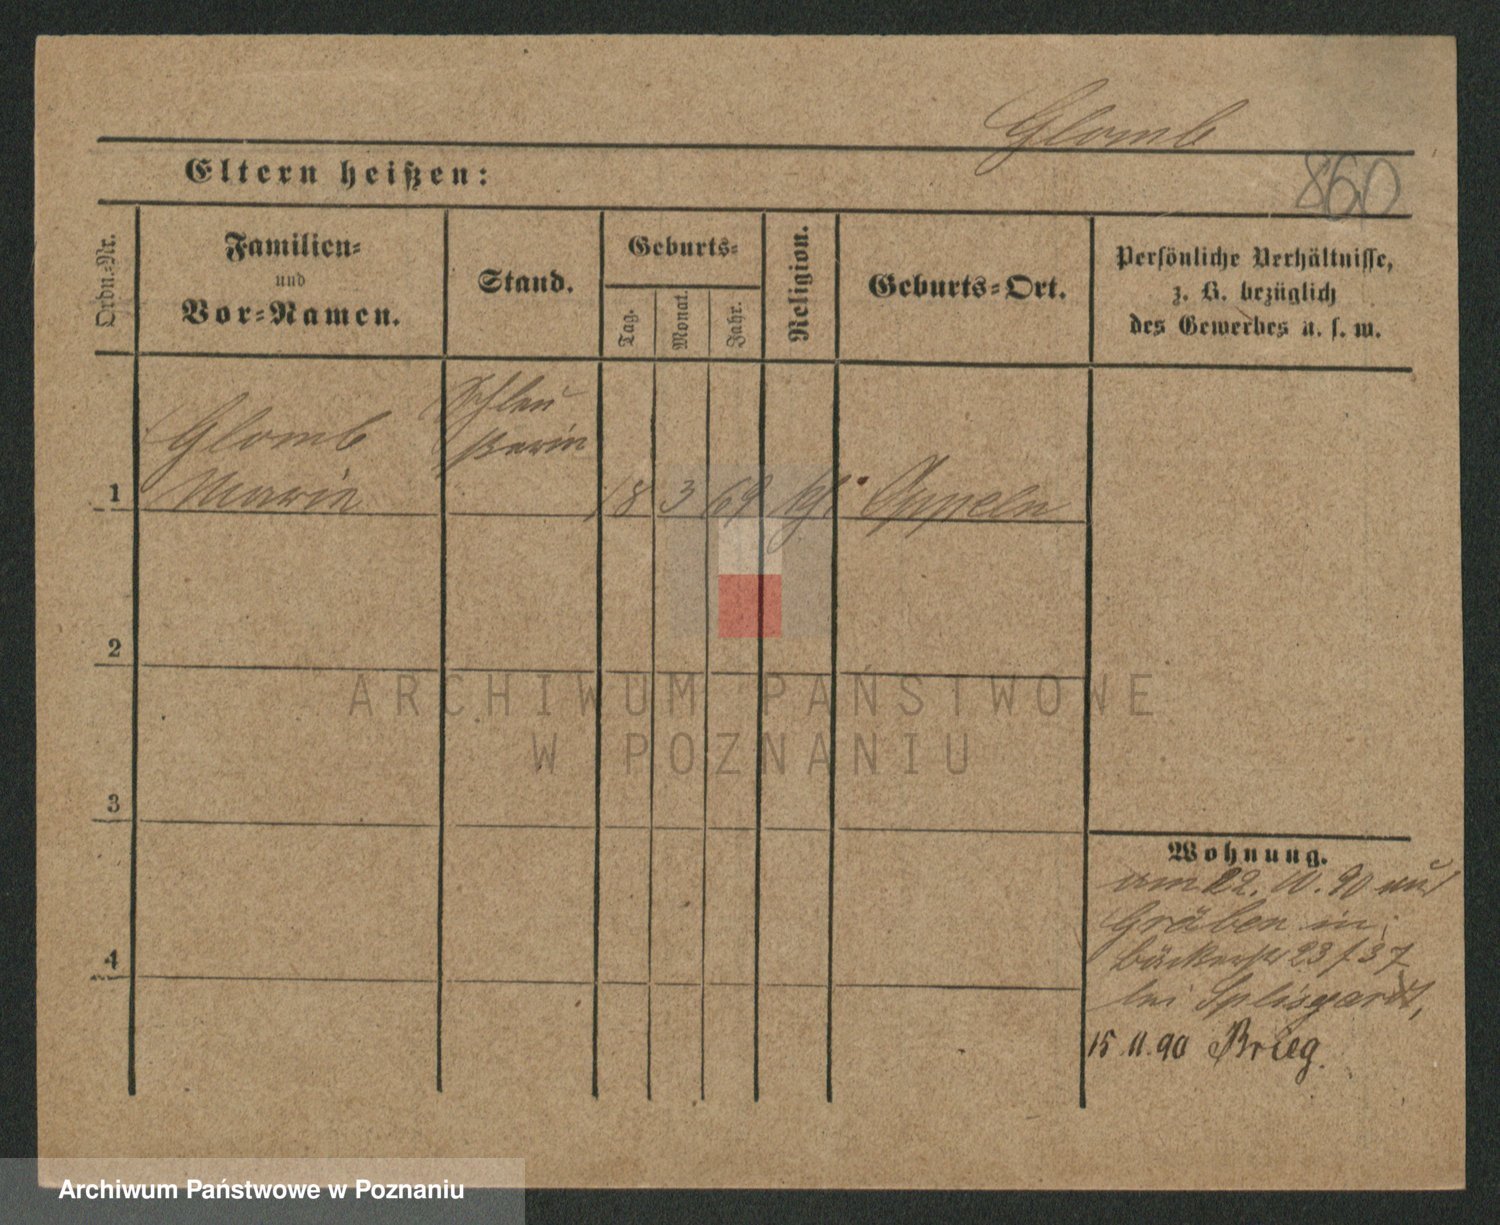 Glomb
860
Eltern heißen:
Ordn.-Nr.
Familien-
und
Vor-Namen.
Stand.
Geburts-
Tag.
Monat.
Jahr.
Religion.
Geburts-Ort.
Persönliche Verhältnisse,
z. B. bezüglich
des Gewerbes u. s. w.
Schleu
ßerin
Glomb
Marie
1
18
3
69
kh
Oppeln
2
3
4
Wohnung.
am 22. 10. 90 aus
Gräben in
Bäckerstr 23/37
bei Splisgardt,
15 11. 90 Brieg.
ARCHIWUM PAŃSTWOWE
W POZNANIU
Archiwum Państwowe w Poznaniu